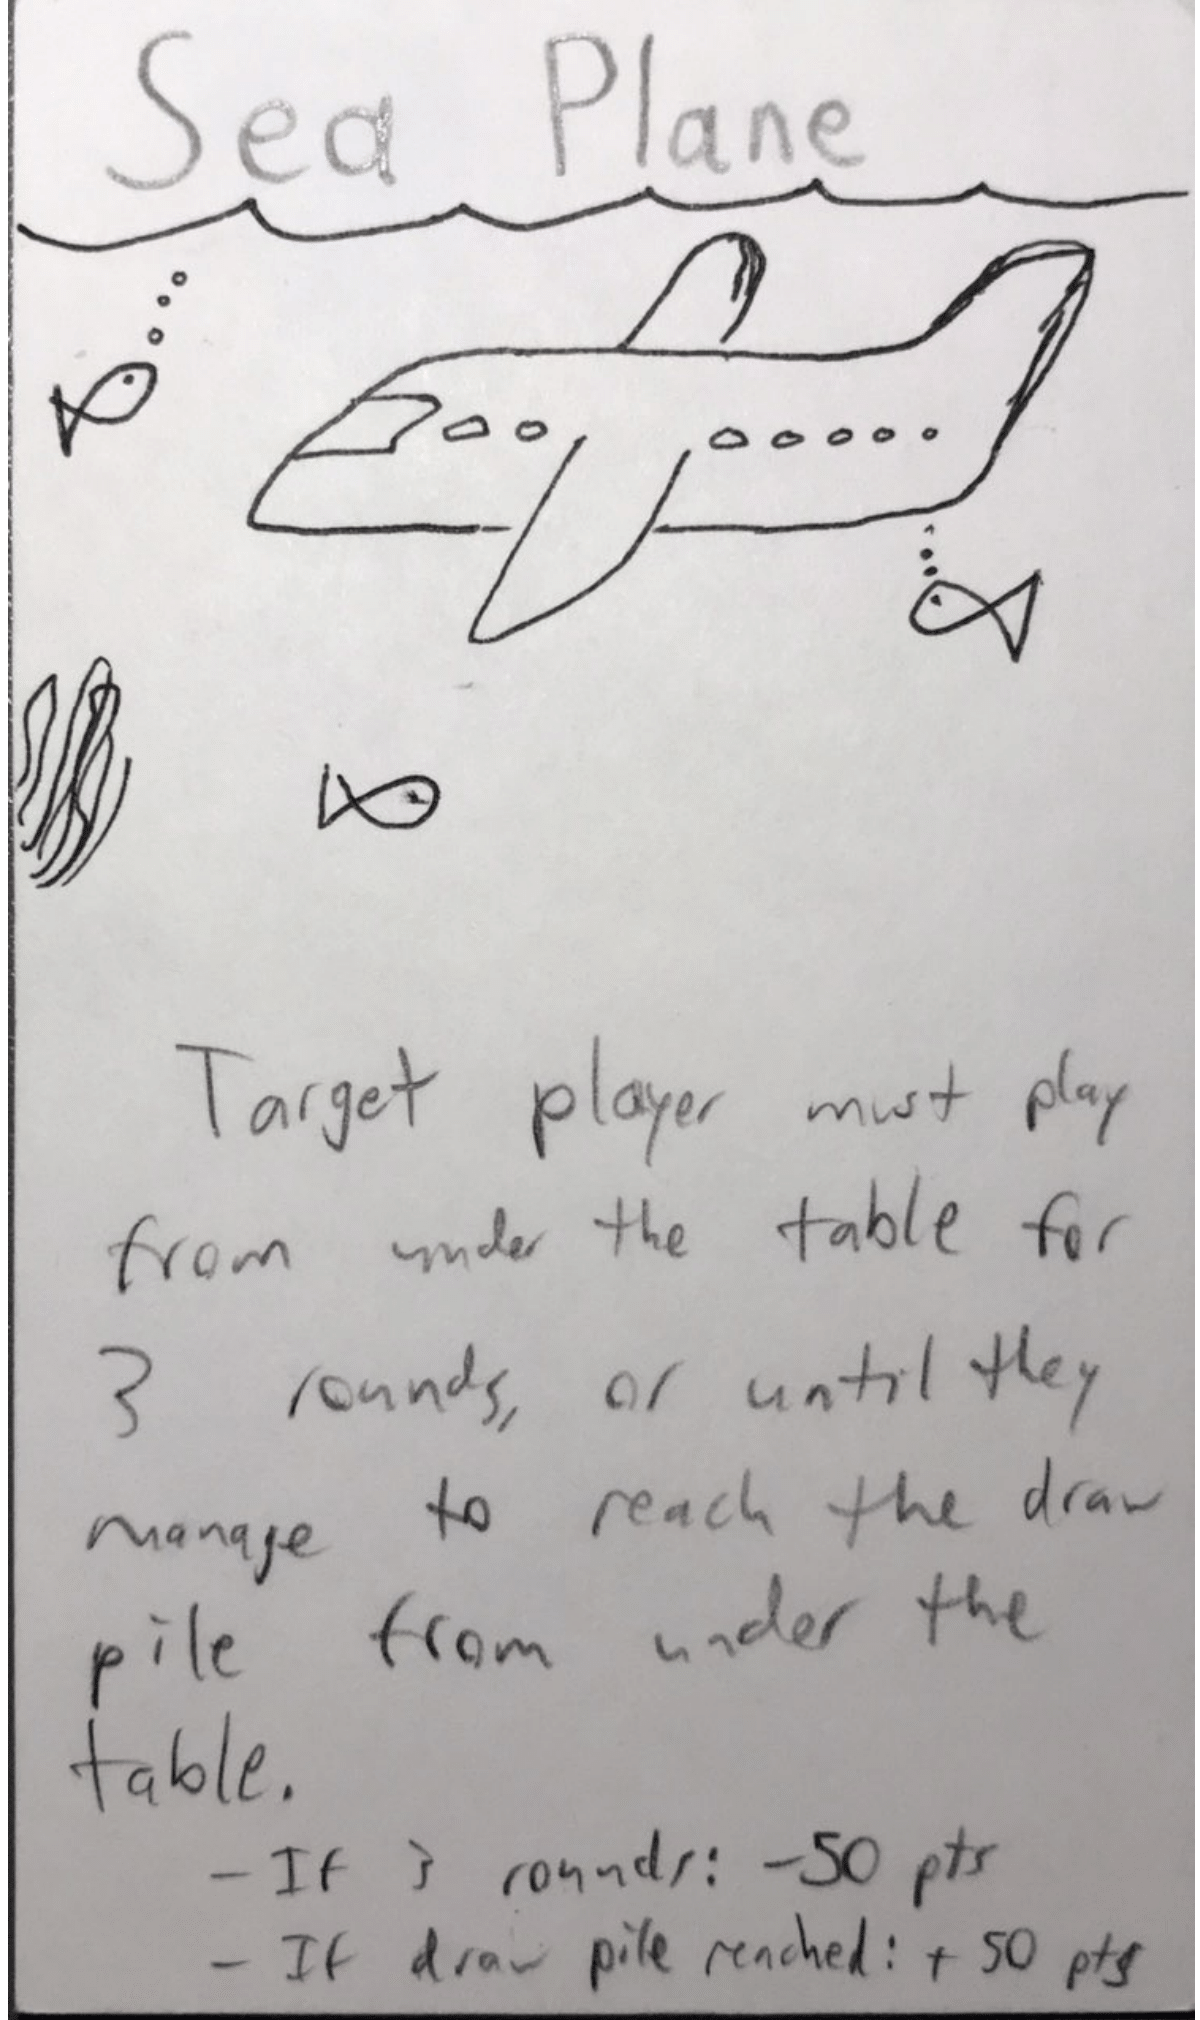 Sea Plane
Target player must play
from under the table for
3 rounds, or until they
manage to reach the draw
pile from under the
table.
- If 3 rounds: -50 pts
- If draw pile reached: + 50 pts